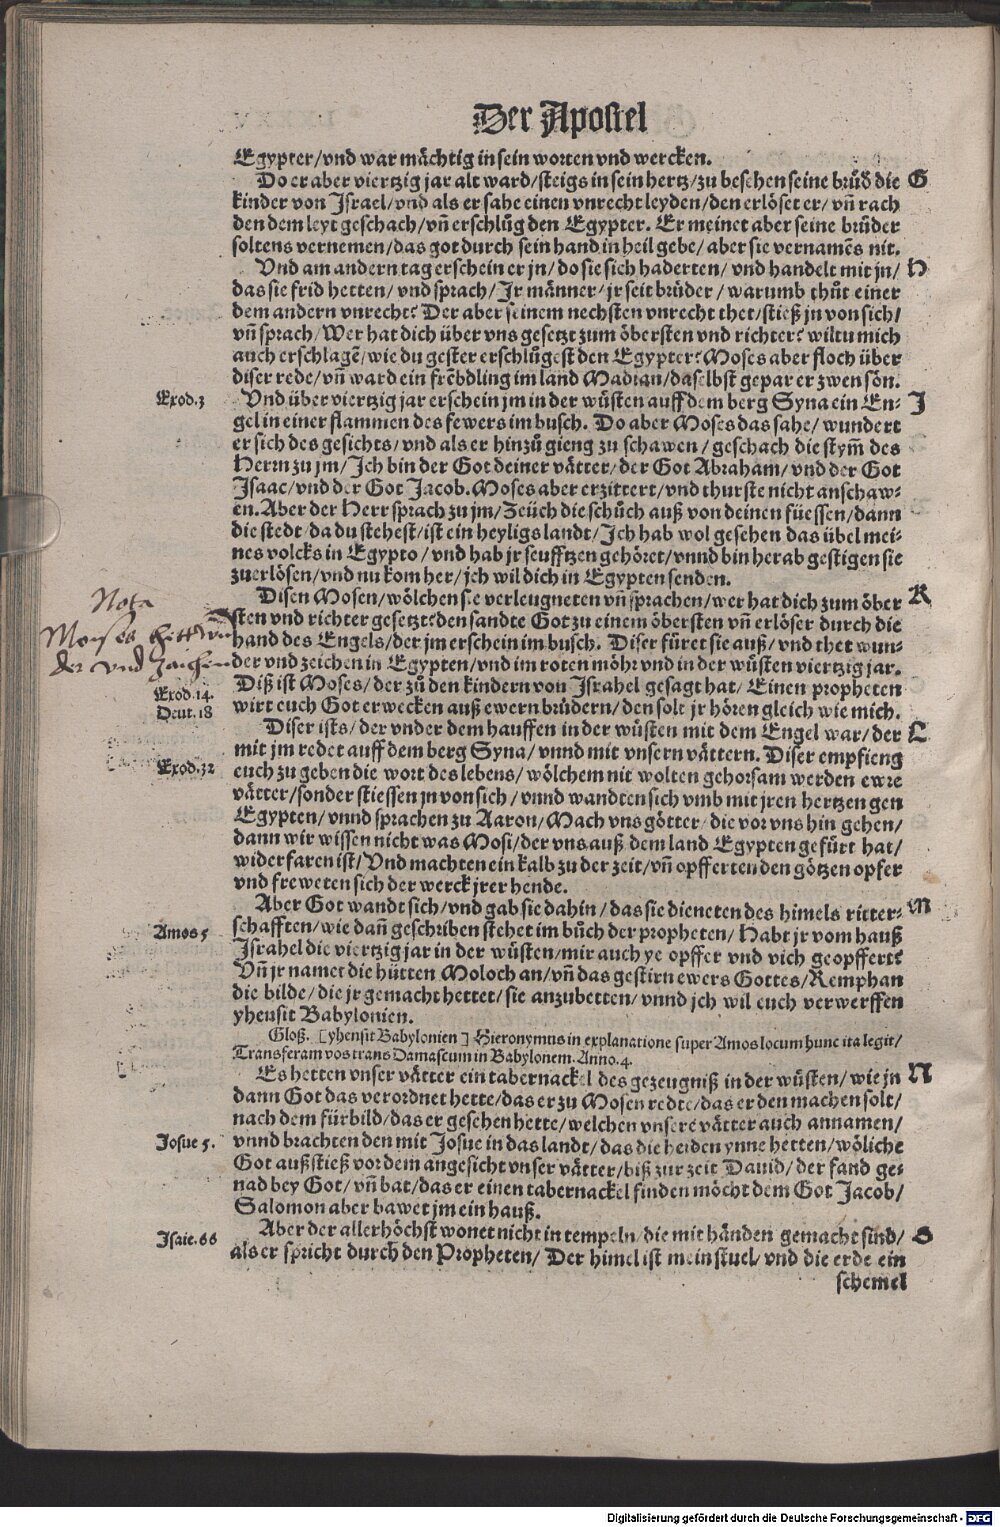 Der Apostel
Egypter/vnd war mächtig in sein worten vnd wercken.
Do er aber viertzig jar alt ward/steigs in sein hertz/zu besehen seine brůd̄ die G
kinder von Israel/vnd als er sahe einen vnrecht leyden/den erlöset er/vñ rach
den dem leyt geschach/vñ erschlůg den Egypter. Er meinet aber seine brüder
soltens vernemen/das got durch sein hand in heil gebe/aber sie vernamẽs nit.
Vnd am andern tag erschein er jn/do sie sich haderten/vnd handelt mit jn/ H
das sie frid hetten/vnd sprach/Ir männer/jr seit brüder/warumb thůt einer
dem andern vnrecht? Der aber seinem nechsten vnrecht thet/stieß jn von sich/
vñ sprach/Wer hat dich über vns gesetzt zum öbersten vnd richter? wiltu mich
auch erschlagẽ/wie du gester erschlůgest den Egypter? Moses aber floch über
diser rede/vñ ward ein frẽbdling im land Madian/daselbst gepar er zwen sön.
Exod.3 Vnd über viertzig jar erschein jm in der wüsten auff dem berg Syna ein En⸗ I
gel in einer flammen des fewers im busch. Do aber Moses das sahe/wundert
er sich des gesichts/vnd als er hinzů gieng zu schawen/geschach die stym̃ des
Herrn zu jm/Ich bin der Got deiner vätter/der Got Abraham/vnd der Got
Isaac/vnd der Got Jacob. Moses aber erzittert/vnd thurste nicht anschaw⸗
en. Aber der Herr sprach zu jm/Zeüch die schůch auß von deinen füessen/dann
die stedt/da du stehest/ist ein heyligs landt/Ich hab wol gesehen das übel mei⸗
nes volcks in Egypto/vnd hab jr seufftzen gehöret/vnnd bin herab gestigen sie
zuerlösen/vnd nu kom her/jch wil dich in Egypten senden.
Disen Mosen/wölchen sie verleugneten vñ sprachen/wer hat dich zum öber K
sten vnd richter gesetzt? den sandte Got zu einem öbersten vñ erlöser durch die
hand des Engels/der jm erschein im busch. Diser füret sie auß/vnd thet wun⸗
der vnd zeichen in Egypten/vnd im roten möhr vnd in der wüsten viertzig jar.
Nota
Moises thett wun
der vnd zaichen
Exod.14. Diß ist Moses/der zů den kindern von Israhel gesagt hat/Einen propheten
Deut.18 wirt euch Got erwecken auß ewern brüdern/den solt jr hören gleich wie mich.
Diser ists/der vnder dem hauffen in der wüsten mit dem Engel war/der L
mit jm redet auff dem berg Syna/vnnd mit vnsern vättern. Diser empfieng
Exod.32 euch zu geben die wort des lebens/wölchem nit wolten gehorsam werden ewre
vätter/sonder stiessen jn von sich/vnnd wandten sich vmb mit jren hertzen gen
Egypten/vnnd sprachen zu Aaron/Mach vns götter/die vor vns hin gehen/
dann wir wissen nicht was Mosi/der vns auß dem land Egypten gefürt hat/
widerfaren ist/Vnd machten ein kalb zu der zeit/vñ opfferten den götzen opfer
vnd freweten sich der werck jrer hende.
Aber Got wandt sich/vnd gab sie dahin/das sie dieneten des himels ritter⸗ M
Amos 5 schafften/wie dañ geschriben stehet im bůch der propheten/Habt jr vom hauß
Israhel die viertzig jar in der wüsten/mir auch ye opffer vnd vich geopffert?
Vñ jr namet die hütten Moloch an/vñ das gestirn ewers Gottes/Remphan
die bilde/die jr gemacht hettet/sie anzubetten/vnnd jch wil euch verwerffen
yhensit Babylonien.
Gloß. [yhensit Babylonien] Hieronymus in explanatione super Amos locum hunc ita legit/
Transferam vos trans Damascum in Babylonem. Anno.4.
Es hetten vnser vätter ein tabernackel des gezeugniß in der wüsten/wie jn N
dann Got das verordnet hette/das er zu Mosen redte/das er den machen solt/
nach dem fürbild/das er gesehen hette/welchen vnsere vätter auch annamen/
Josue 5. vnnd brachten den mit Josue in das landt/das die heiden ynne hetten/wöliche
Got außstieß vor dem angesicht vnser vätter/biß zur zeit Dauid/der fand ge⸗
nad bey Got/vñ bat/das er einen tabernackel finden möcht dem Got Jacob/
Salomon aber bawet jm ein hauß.
Isaie.66 Aber der allerhöchst wonet nicht in tempeln/die mit händen gemacht sind/ O
als er spricht durch den Propheten/Der himel ist mein stuel/vnd die erde ein
schemel
Digitalisierung gefördert durch die Deutsche Forschungsgemeinschaft - DFG